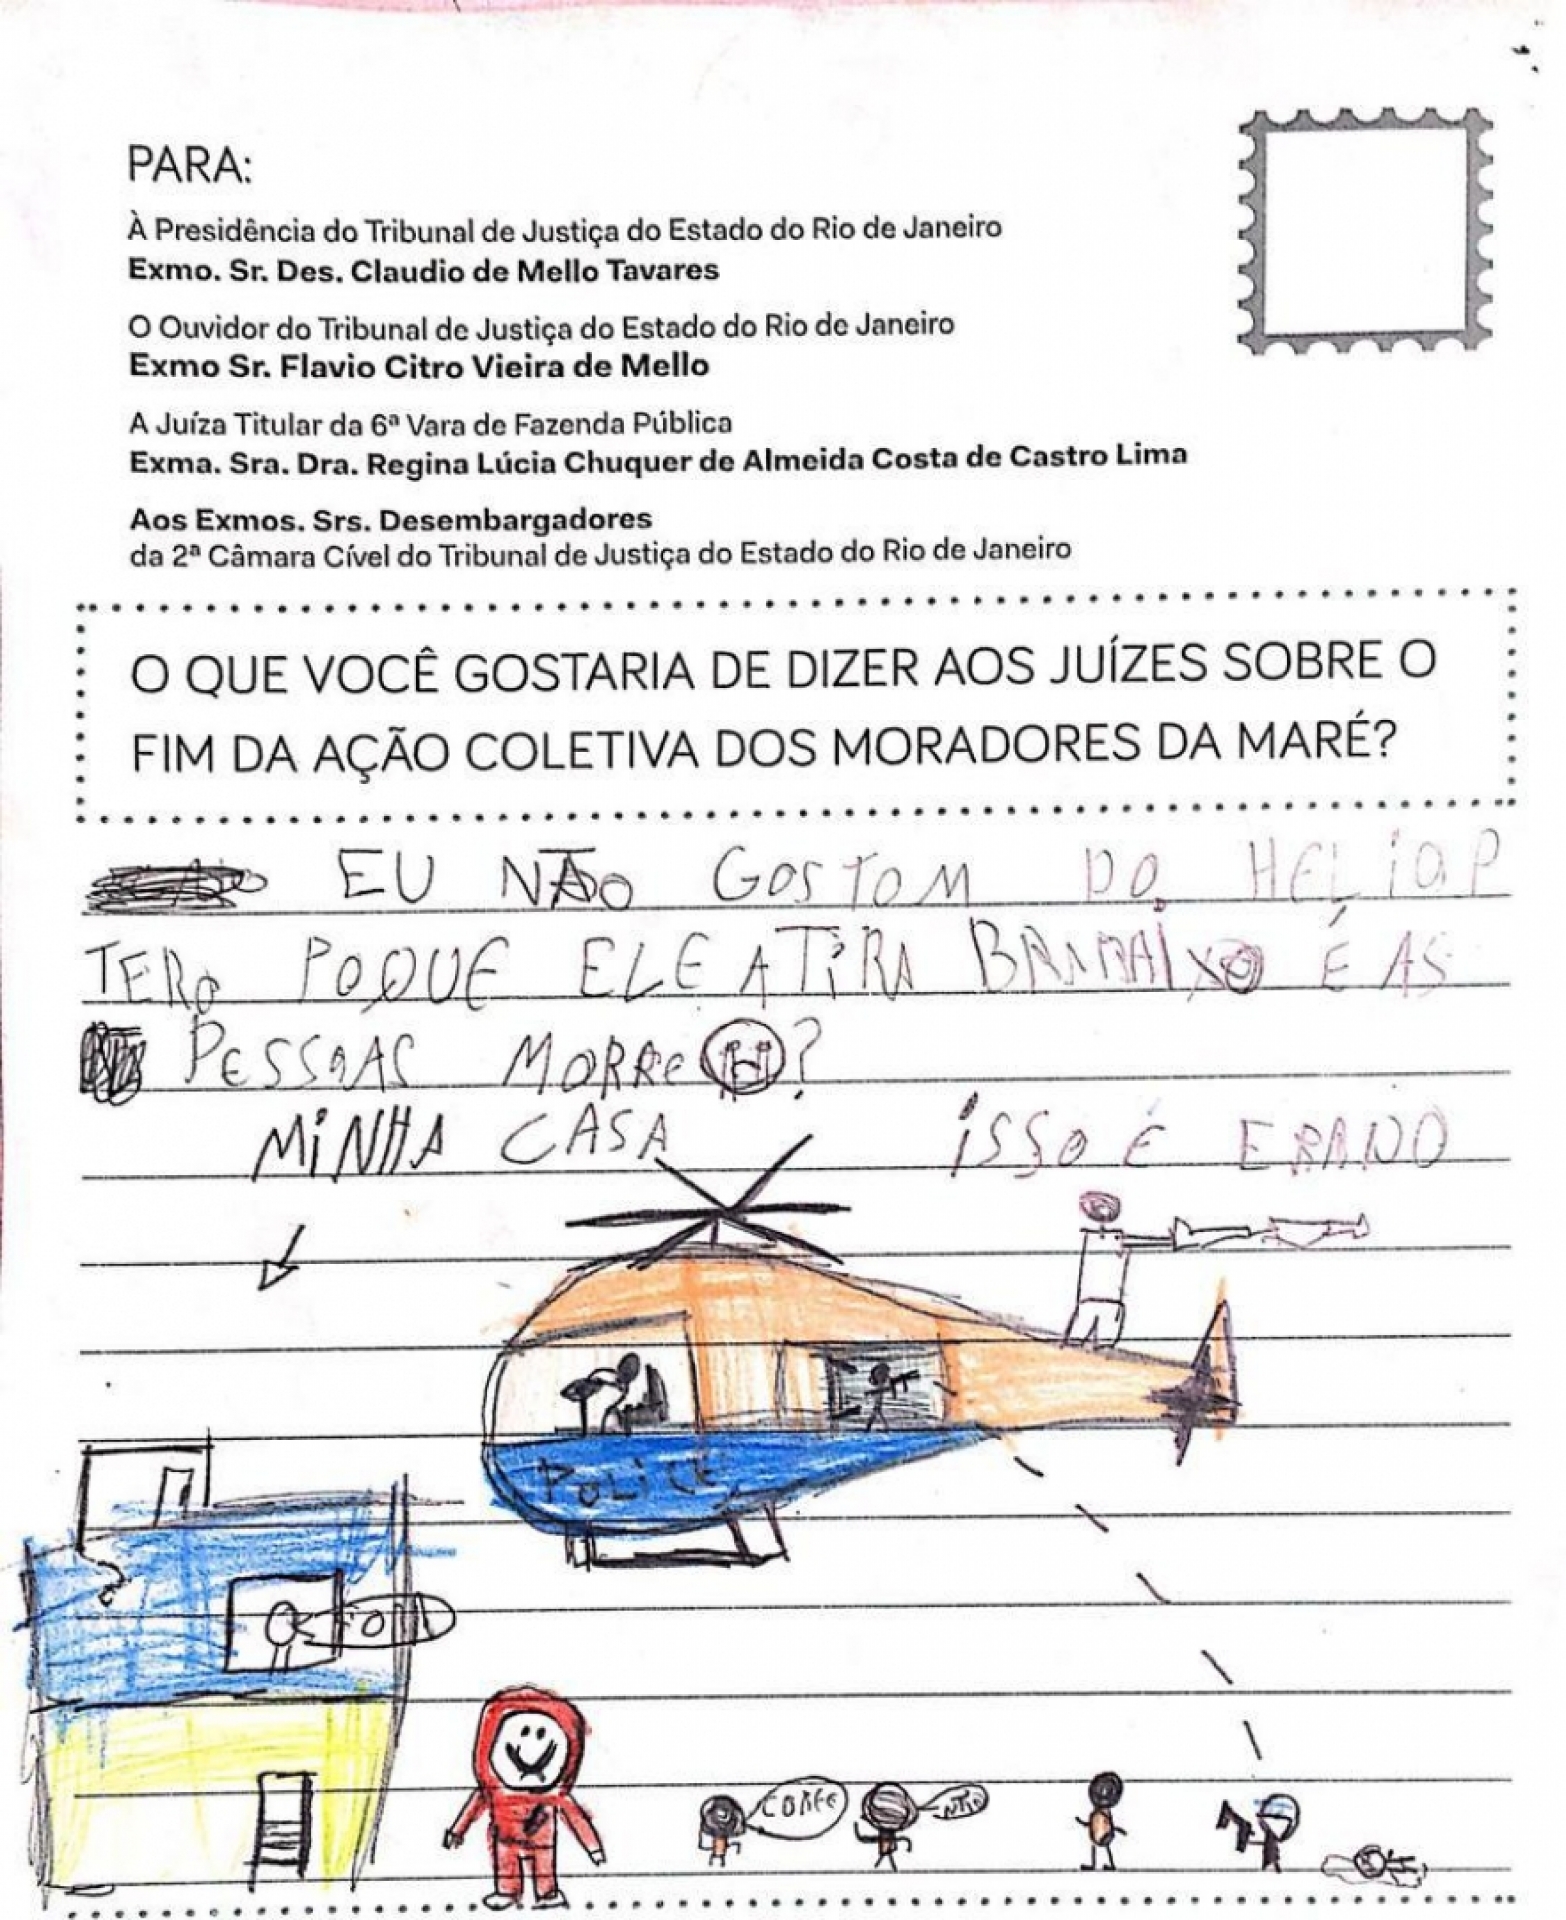 PARA:
À Presidência do Tribunal de Justiça do Estado do Rio de Janeiro
Exmo. Sr. Des. Claudio de Mello Tavares
O Ouvidor do Tribunal de Justiça do Estado do Rio de Janeiro
Exmo Sr. Flavio Citro Vieira de Mello
A Juíza Titular da 6ª Vara de Fazenda Pública
Exma. Sra. Dra. Regina Lúcia Chuquer de Almeida Costa de Castro Lima
Aos Exmos. Srs. Desembargadores
da 2ª Câmara Cível do Tribunal de Justiça do Estado do Rio de Janeiro
O QUE VOCÊ GOSTARIA DE DIZER AOS JUÍZES SOBRE O
FIM DA AÇÃO COLETIVA DOS MORADORES DA MARÉ?
EU NÃO GOSTOM DO HELIOP
TERO POQUE ELE ATIRA É AS
PESSOAS MORRE ?
MINHA CASA ISSO É ERADO
POLICE
CORRE